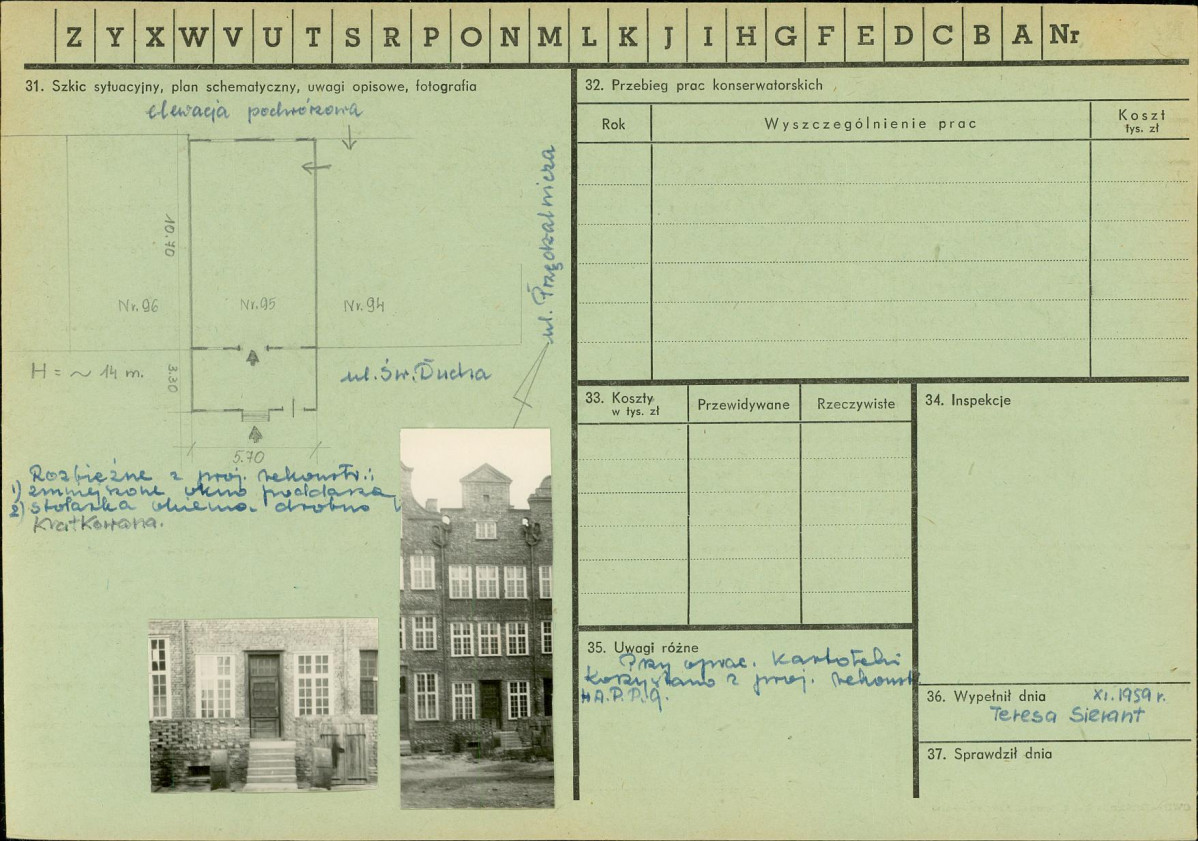 Z Y X W V U T S R P O N M L K J I H G F E D C B A Nr
31. Szkic sytuacyjny, plan schematyczny, uwagi opisowe, fotografia
elewacja podwórzowa
10.70
Nr. 96
Nr. 95
Nr. 94
ul. Przędzalnicza
H = ~ 14 m.
3.30
ul. Św. Ducha
5.70
Rozbieżne z proj. rekonstr.:
1) zmniejszone okno poddasza
2) stolarka okienna drobno
Kratkowana.
32. Przebieg prac konserwatorskich
Rok
Wyszczególnienie prac
Koszt
tys. zł
33. Koszty
w tys. zł
Przewidywane
Rzeczywiste
34. Inspekcje
35. Uwagi różne
Przy oprac. Kartoteki
Korzystano z proj. rekonst
36. Wypełnił dnia XI. 1959 r.
Teresa Sierant
37. Sprawdził dnia